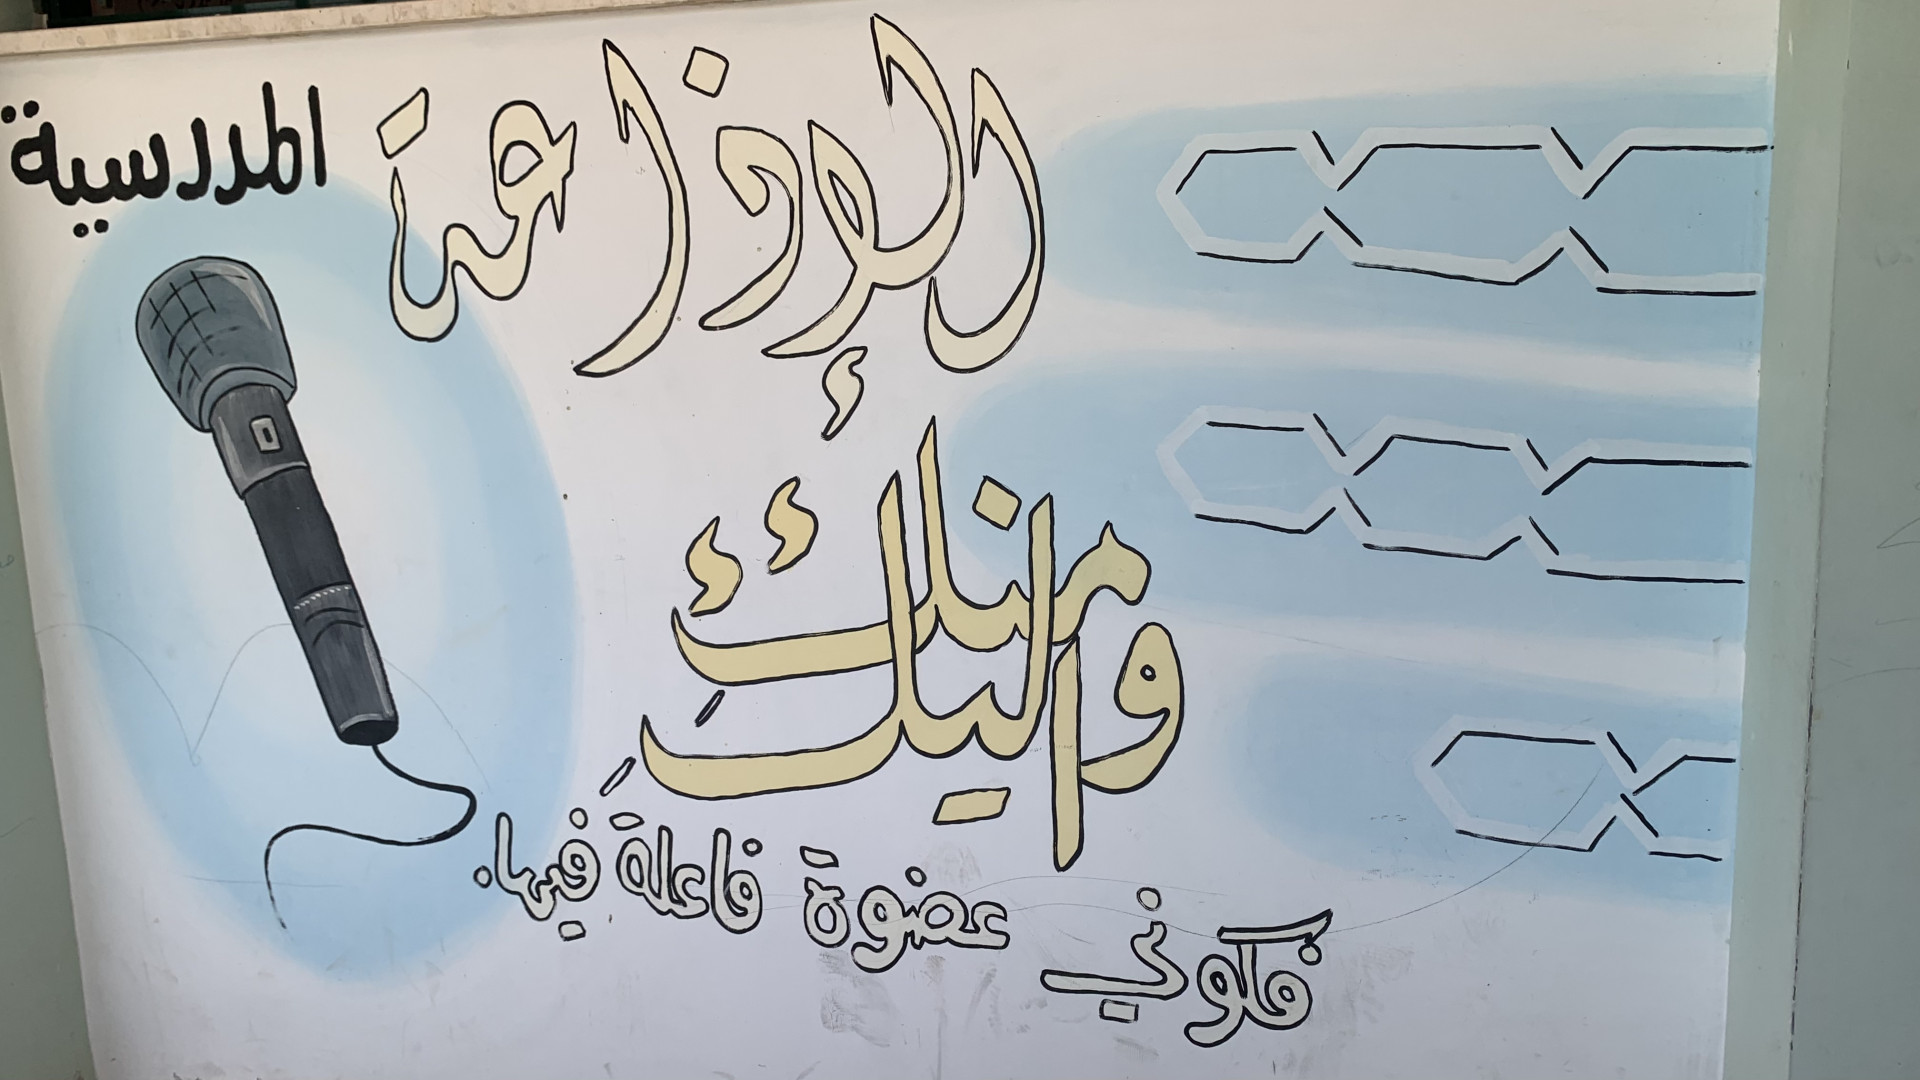 الإذاعة المدرسية
منكِ
وإليكِ
فكوني عضوة فاعلة فيها.